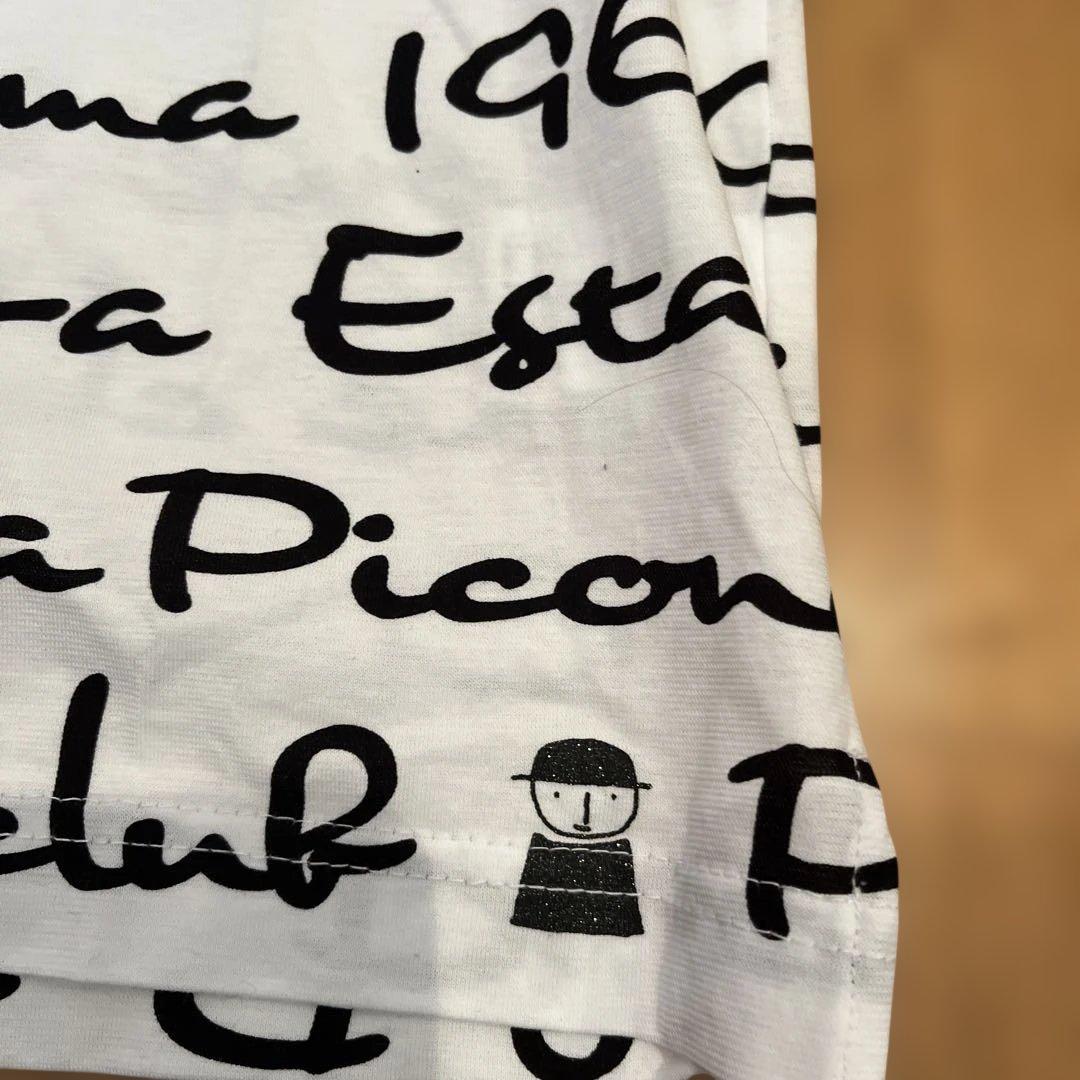 ma 196
a Esta
a Picon
club P